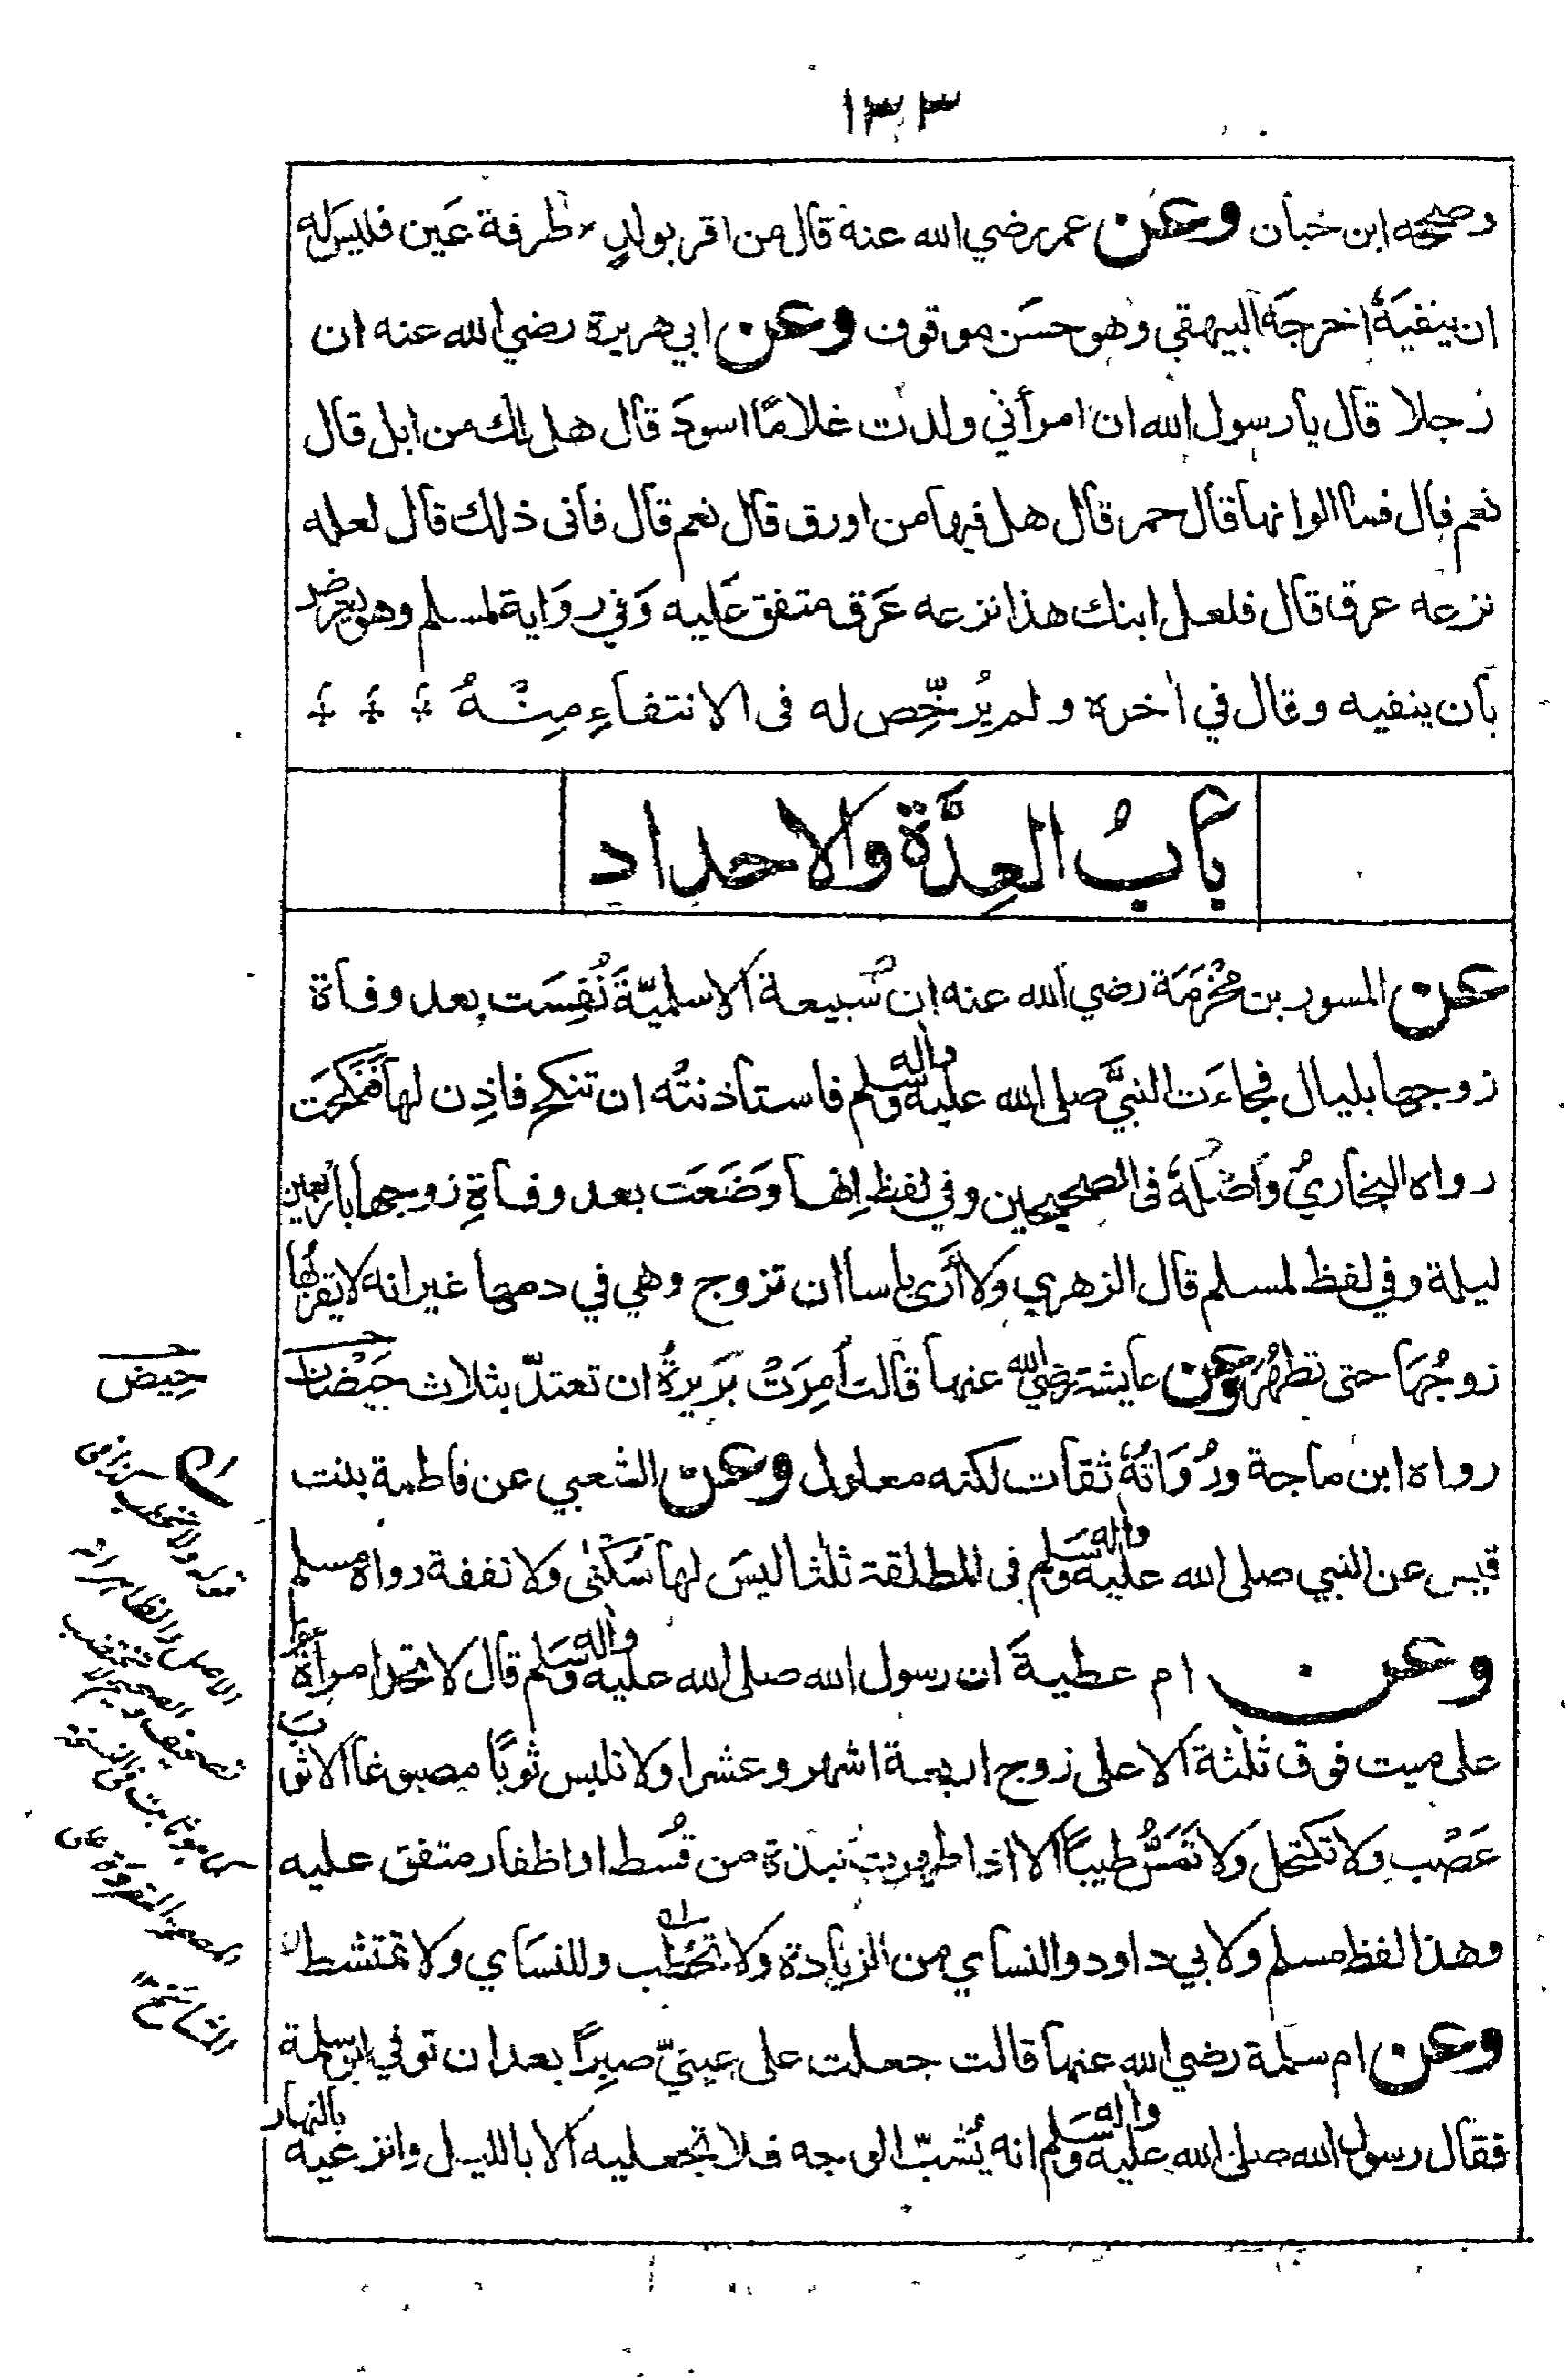 ١٣٣
وصححه ابن حبان وعن عمر رضي الله عنه قال من اقر بولد طرفة عَين فليس له
ان ينفيَهُ اخرجَه البيهقي وهو حسَن موقوف وعن ابي هريرة رضي الله عنه ان
رجلا قال يا رسول الله ان امرأتي ولدت غلامًا اسودَ قال هل لك من ابل قال
نعم قال فما الوانها قال حمر قال هل فيها من اورق قال نعم قال فانى ذلك قال لعله
نزعه عرق قال فلعل ابنك هذا نزعه عَرق متفق عَليه وَفي روَاية لمسلم وهو يعرض
بان ينفيه وقال في اخره ولم يُرخِّص له فى الانتفاءِ مِنْهُ
بابُ العِدَّة والاحداد
عن المسور بن مَخْرَمَة رضي الله عنه ان سُبيعة الاسلميّة نُفِسَت بعد وفاة
زوجها بليال فجاءَت النبيَّ صلى الله عليه واله وسلم فاستاذنتُه ان تنكح فاذِن لها فنَكَحَت
رواه البخاريُ وأصْلهُ فى الصحيحين وفي لفظ انها وَضَعَت بعد وفاةِ زوجها باربعين
ليلة وفي لفظ لمسلم قال الزهري ولا أرَى باسا ان تزوج وهي في دمها غير انه لا يقربُها
زوجُهَا حتى تطهُر وعن عايشة رضي الله عنها قالت اُمِرَتْ بَرَيرةُ ان تعتدّ بثلاث حَيْضات
حِيَض
رواه ابن ماجة ورُوَاتُهُ ثقات لكنه معلول وعن الشعبي عن فاطمة بنت
قيس عن النبي صلى الله عليه واله وسلم فى المطلقة ثلثا ليسَ لها سُكْنٰى ولا نفقة رواه مسلم
وعن ام عطيةَ ان رسول الله صلى الله عليه واله وسلم قال لا تحد امرأة
على ميت فوق ثلثة الا على زوج اربعة اشهر وعشرا ولا تلبس ثوبًا مصبوغا الا ثوبَ
عَصْبٍ ولا تكتحل ولا تَمَسُّ طيبًا الا اذا طهرت نبذة من قُسط او اظفار متفق عليه
وهذا لفظ مسلم ولابي داود والنساي من الزيادة ولا تختطب وللنسَاي ولا تمتشط
وعن ام سلمة رضي الله عنها قالت جعلت على عينيّ صبِرًا بعد ان توفي ابو سلمة
فقال رسول الله صلى الله عليه واله وسلم انه يُشبّ الوجه فلا تجعليه الا بالليل وانزعيه بالنهار